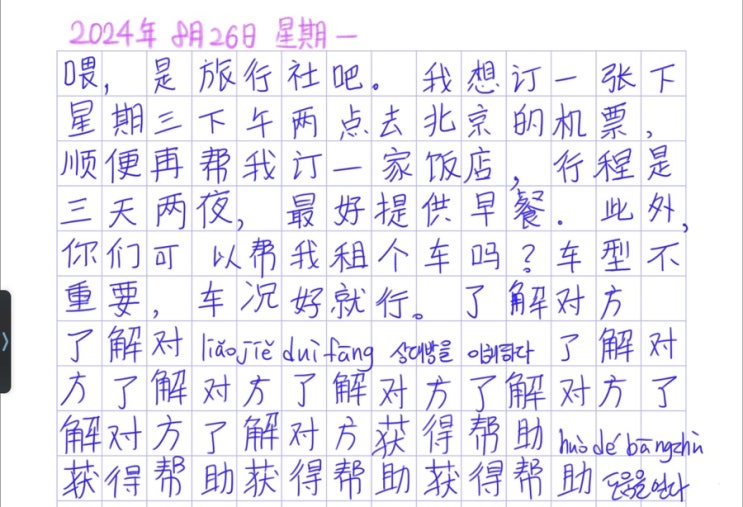 2024年 8月26日 星期一
喂, 是旅行社吧。我想订一张下
星期三下午两点去北京的机票,
顺便再帮我订一家饭店, 行程是
三天两夜, 最好提供早餐. 此外,
你们可以帮我租个车吗? 车型不
重要, 车况好就行。了解对方
了解对 liǎojiě duìfāng 상대방을 이해하다 了解对
方了解对方了解对方了解对方了
解对方了解对方获得帮助 huòdé bāngzhù
获得帮助获得帮助获得帮助 도움을 얻다